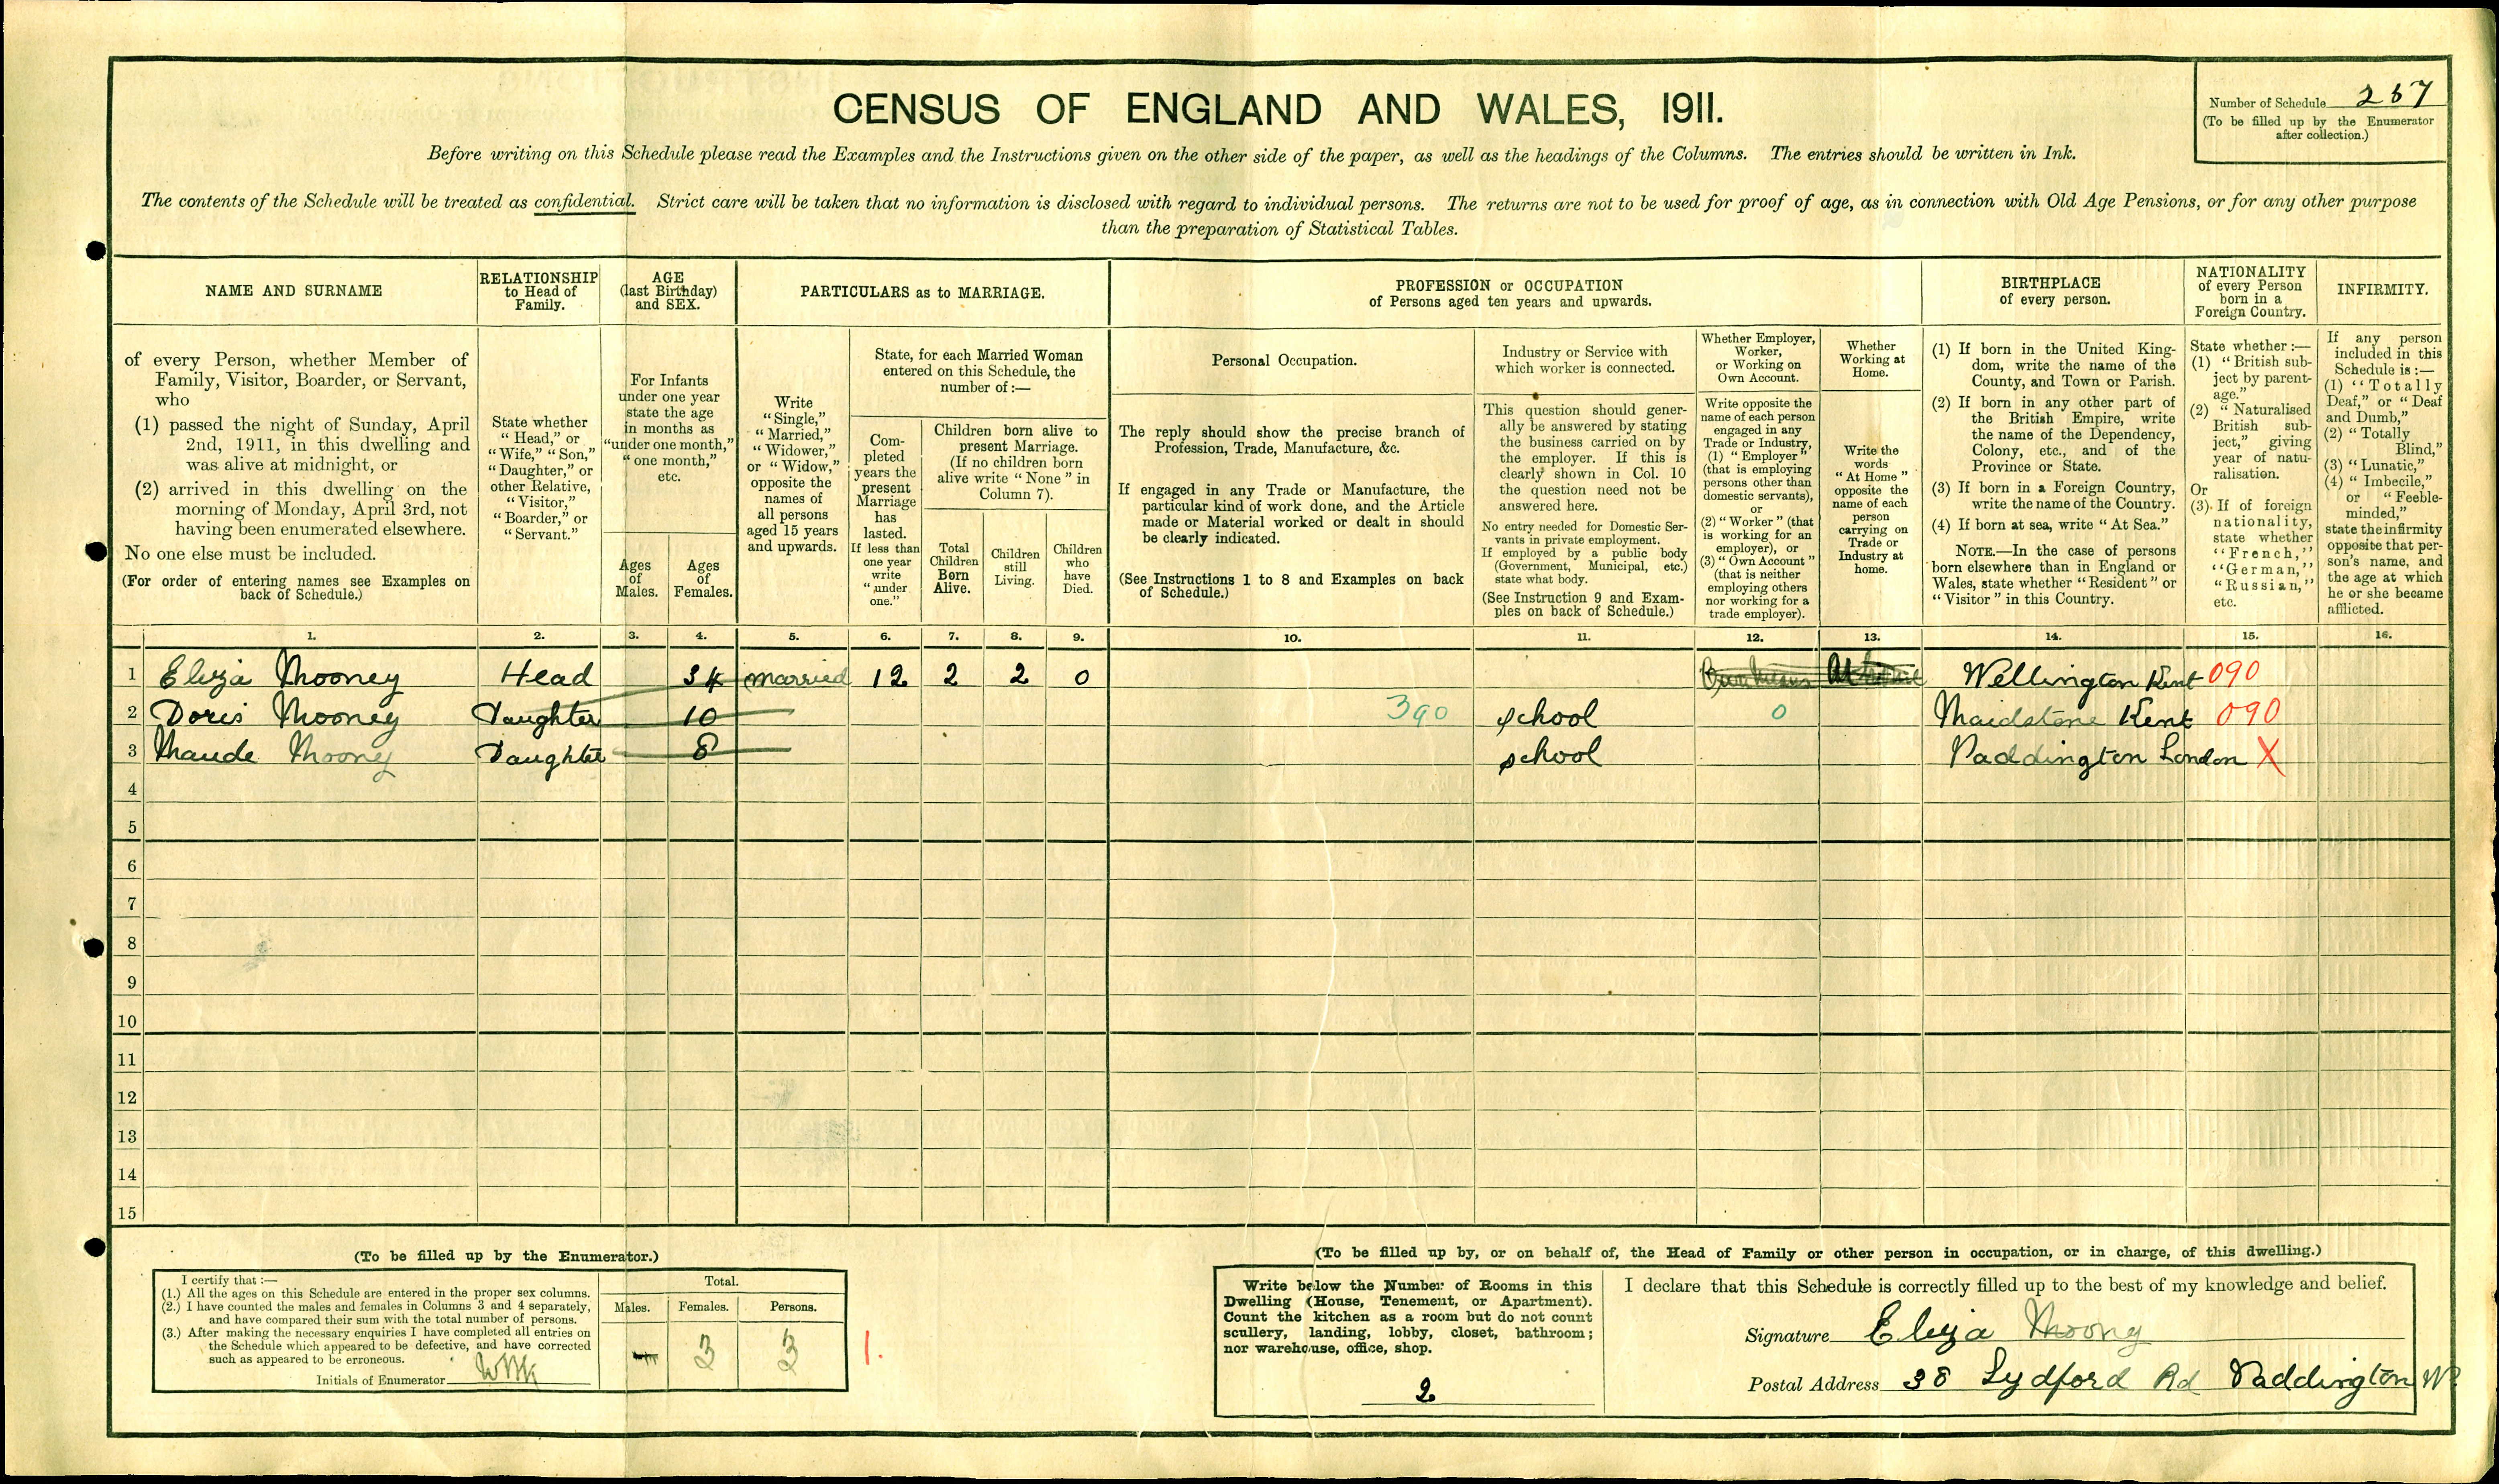 CENSUS OF ENGLAND AND WALES, 1911.
Number of Schedule 287
(To be filled up by the Enumerator
after collection.)
Before writing on this Schedule please read the Examples and the Instructions given on the other side of the paper, as well as the headings of the Columns. The entries should be written in Ink.
The contents of the Schedule will be treated as confidential. Strict care will be taken that no information is disclosed with regard to individual persons. The returns are not to be used for proof of age, as in connection with Old Age Pensions, or for any other purpose
than the preparation of Statistical Tables.
NAME AND SURNAME
of every Person, whether Member of
Family, Visitor, Boarder, or Servant,
who
(1) passed the night of Sunday, April
2nd, 1911, in this dwelling and
was alive at midnight, or
(2) arrived in this dwelling on the
morning of Monday, April 3rd, not
having been enumerated elsewhere.
No one else must be included.
(For order of entering names see Examples on
back of Schedule.)
RELATIONSHIP
to Head of
Family.
State whether
"Head," or
"Wife," "Son,"
"Daughter," or
other Relative,
"Visitor,"
"Boarder," or
"Servant."
AGE
(last Birthday)
and SEX.
For Infants
under one year
state the age
in months as
"under one month,"
"one month,"
etc.
Ages
of
Males.
Ages
of
Females.
PARTICULARS as to MARRIAGE.
Write
"Single,"
"Married,"
"Widower,"
or "Widow,"
opposite the
names of
all persons
aged 15 years
and upwards.
State, for each Married Woman
entered on this Schedule, the
number of:—
Com-
pleted
years the
present
Marriage
has
lasted.
If less than
one year
write
"under
one."
Children born alive to
present Marriage.
(If no children born
alive write "None" in
Column 7).
Total
Children
Born
Alive.
Children
still
Living.
Children
who
have
Died.
PROFESSION or OCCUPATION
of Persons aged ten years and upwards.
Personal Occupation.
The reply should show the precise branch of
Profession, Trade, Manufacture, &c.
If engaged in any Trade or Manufacture, the
particular kind of work done, and the Article
made or Material worked or dealt in should
be clearly indicated.
(See Instructions 1 to 8 and Examples on back
of Schedule.)
Industry or Service with
which worker is connected.
This question should gener-
ally be answered by stating
the business carried on by
the employer. If this is
clearly shown in Col. 10
the question need not be
answered here.
No entry needed for Domestic Ser-
vants in private employment.
If employed by a public body
(Government, Municipal, etc.)
state what body.
(See Instruction 9 and Exam-
ples on back of Schedule.)
Whether Employer,
Worker,
or Working on
Own Account.
Write opposite the
name of each person
engaged in any
Trade or Industry,
(1) "Employer"
(that is employing
persons other than
domestic servants),
or
(2) "Worker" (that
is working for an
employer), or
(3) "Own Account"
(that is neither
employing others
nor working for a
trade employer).
Whether
Working at
Home.
Write the
words
"At Home"
opposite the
name of each
person
carrying on
Trade or
Industry at
home.
BIRTHPLACE
of every person.
(1) If born in the United King-
dom, write the name of the
County, and Town or Parish.
(2) If born in any other part of
the British Empire, write
the name of the Dependency,
Colony, etc., and of the
Province or State.
(3) If born in a Foreign Country,
write the name of the Country.
(4) If born at sea, write "At Sea."
NOTE.—In the case of persons
born elsewhere than in England or
Wales, state whether "Resident" or
"Visitor" in this Country.
NATIONALITY
of every Person
born in a
Foreign Country.
State whether:—
(1) "British sub-
ject by parent-
age."
(2) "Naturalised
British sub-
ject," giving
year of natu-
ralisation.
Or
(3) If of foreign
nationality,
state whether
"French,"
"German,"
"Russian,"
etc.
INFIRMITY.
If any person
included in this
Schedule is:—
(1) "Totally
Deaf," or "Deaf
and Dumb,"
(2) "Totally
Blind,"
(3) "Lunatic,"
(4) "Imbecile,"
or "Feeble-
minded,"
state the infirmity
opposite that per-
son's name, and
the age at which
he or she became
afflicted.
1. 2. 3. 4. 5. 6. 7. 8. 9. 10. 11. 12. 13. 14. 15. 16.
1 Eliza Mooney Head 34 married 12 2 2 0 Wellington Kent 090
2 Doris Mooney Daughter 10 390 school 0 Maidstone Kent 090
3 Maude Moony Daughter 8 school Paddington London X
4
5
6
7
8
9
10
11
12
13
14
15
(To be filled up by the Enumerator.)
I certify that:—
(1.) All the ages on this Schedule are entered in the proper sex columns.
(2.) I have counted the males and females in Columns 3 and 4 separately,
and have compared their sum with the total number of persons.
(3.) After making the necessary enquiries I have completed all entries on
the Schedule which appeared to be defective, and have corrected
such as appeared to be erroneous.
Initials of Enumerator
Total.
Males. Females. Persons.
3 3
1.
(To be filled up by, or on behalf of, the Head of Family or other person in occupation, or in charge, of this dwelling.)
Write below the Number of Rooms in this
Dwelling (House, Tenement, or Apartment).
Count the kitchen as a room but do not count
scullery, landing, lobby, closet, bathroom;
nor warehouse, office, shop.
2
I declare that this Schedule is correctly filled up to the best of my knowledge and belief.
Signature Eliza Moony
Postal Address 38 Lydford Rd Paddington W.